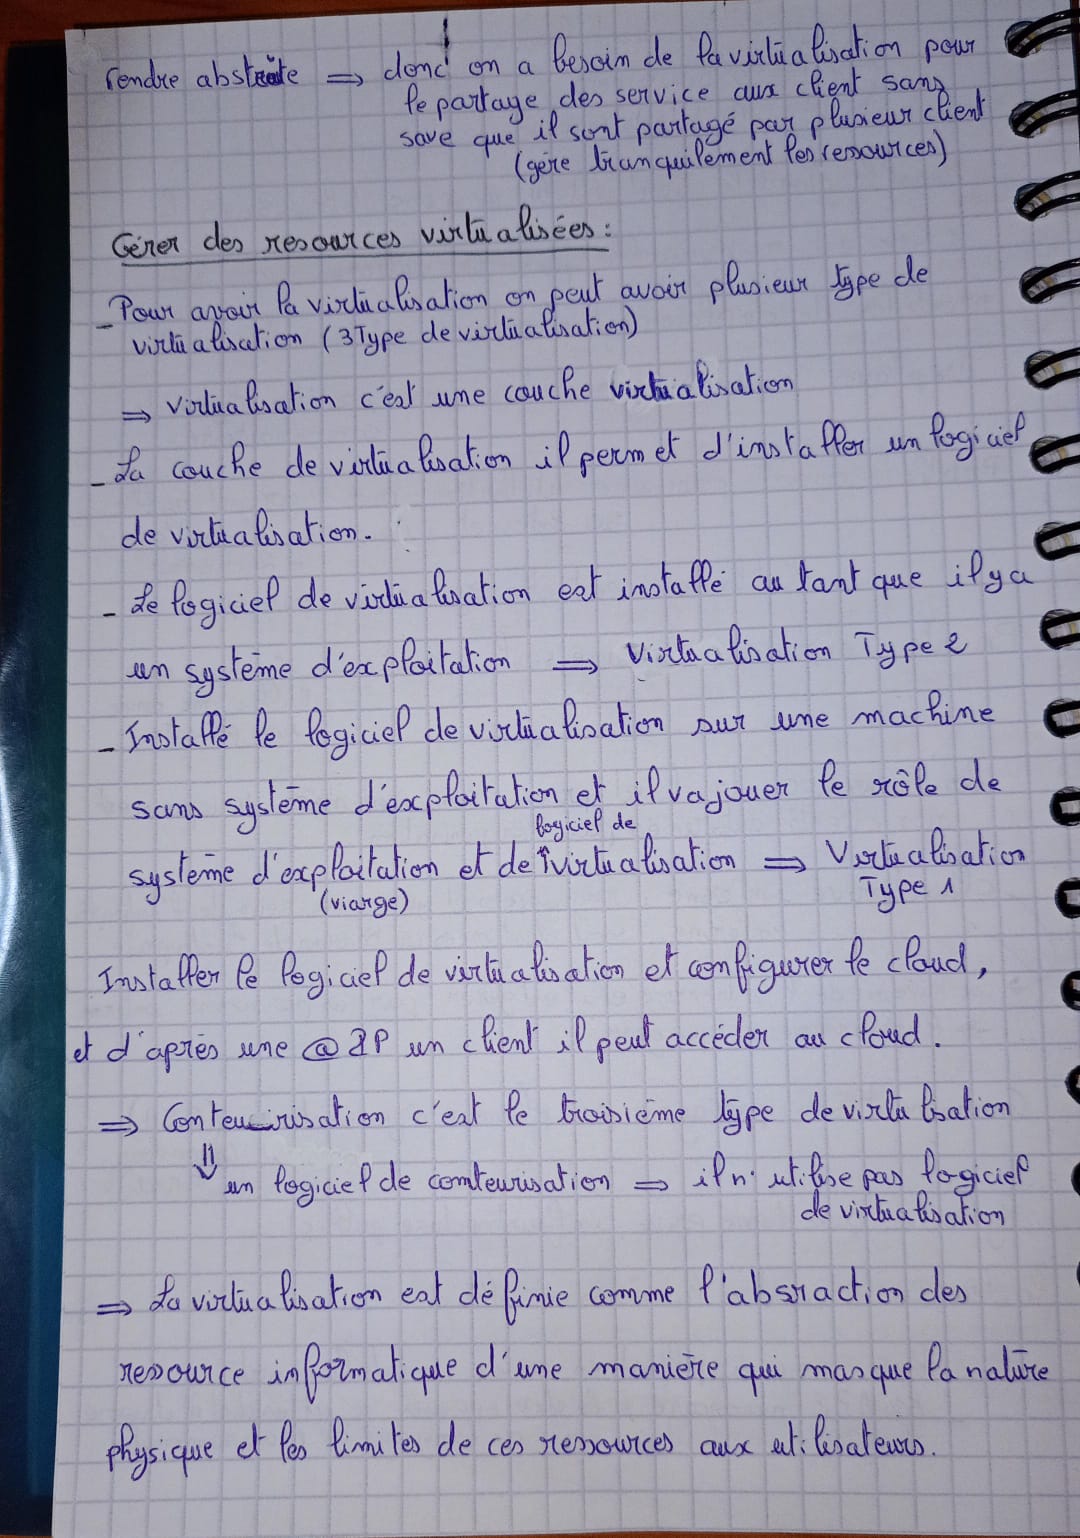 rendre abstraite ⇒ donc on a besoin de la virtualisation pour
le partage des service aux client sans
save que il sont partagé par plusieur client
(gére tranquilement les ressources)
Gérer des resources virtualisées :
- Pour avoir la virtualisation on peut avoir plusieur type de
virtualisation (3 Type de virtualisation)
⇒ virtualisation c'est une couche virtualisation
- La couche de virtualisation il permet d'installer un logiciel
de virtualisation.
- Le logiciel de virtualisation est installé au tant que il y a
un système d'exploitation ⇒ Virtualisation Type 2
- Installé le logiciel de virtualisation sur une machine
sans système d'exploitation et il va jouer le rôle de
logiciel de
système d'exploitation et de virtualisation ⇒ Virtualisation
(viarge) Type 1
Installer le logiciel de virtualisation et configurer le cloud,
et d'après une @ IP un client il peut accéder au cloud.
⇒ Conteurisation c'est le troisième type de virtu lisation
⇓ un logiciel de conteurisation ⇒ il n'utilise pas logiciel
de virtualisation
⇒ La virtualisation est définie comme l'absraction des
ressource informatique d'une manière qui masque la nature
physique et les limites de ces ressources aux utilisateurs.